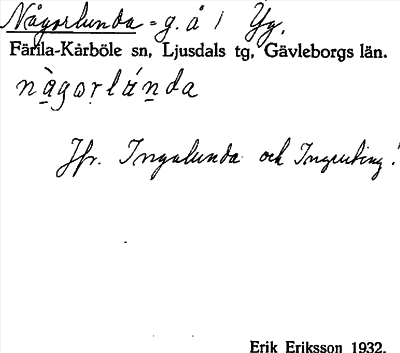 Någorlunda = g. å / Yg.
Färila-Kårböle sn, Ljusdals tg, Gävleborgs län.
nàgorlánda
Jfr. Ingalunda och
Erik Eriksson 1932.